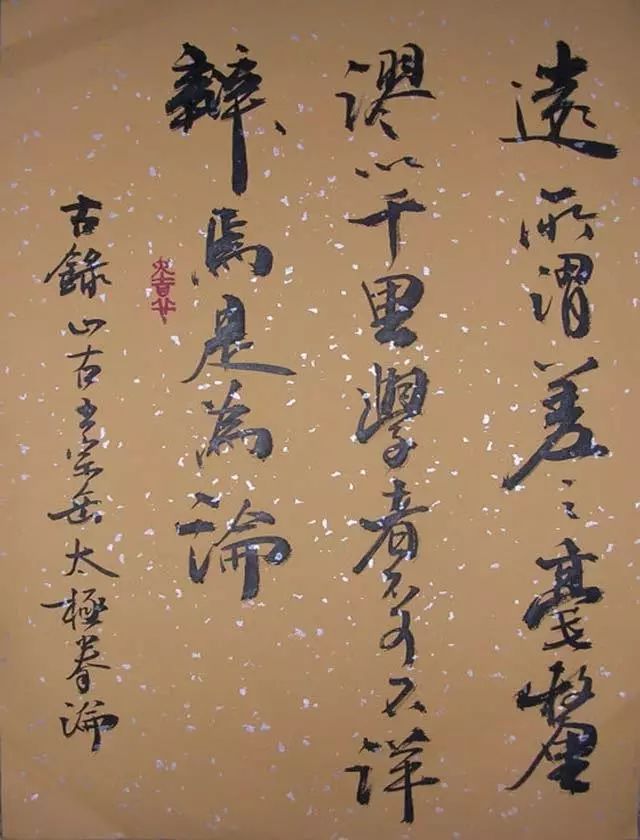 遠所謂差之毫釐
謬以千里學者不可不詳
辨焉是為論
右錄山右王宗岳太極拳論